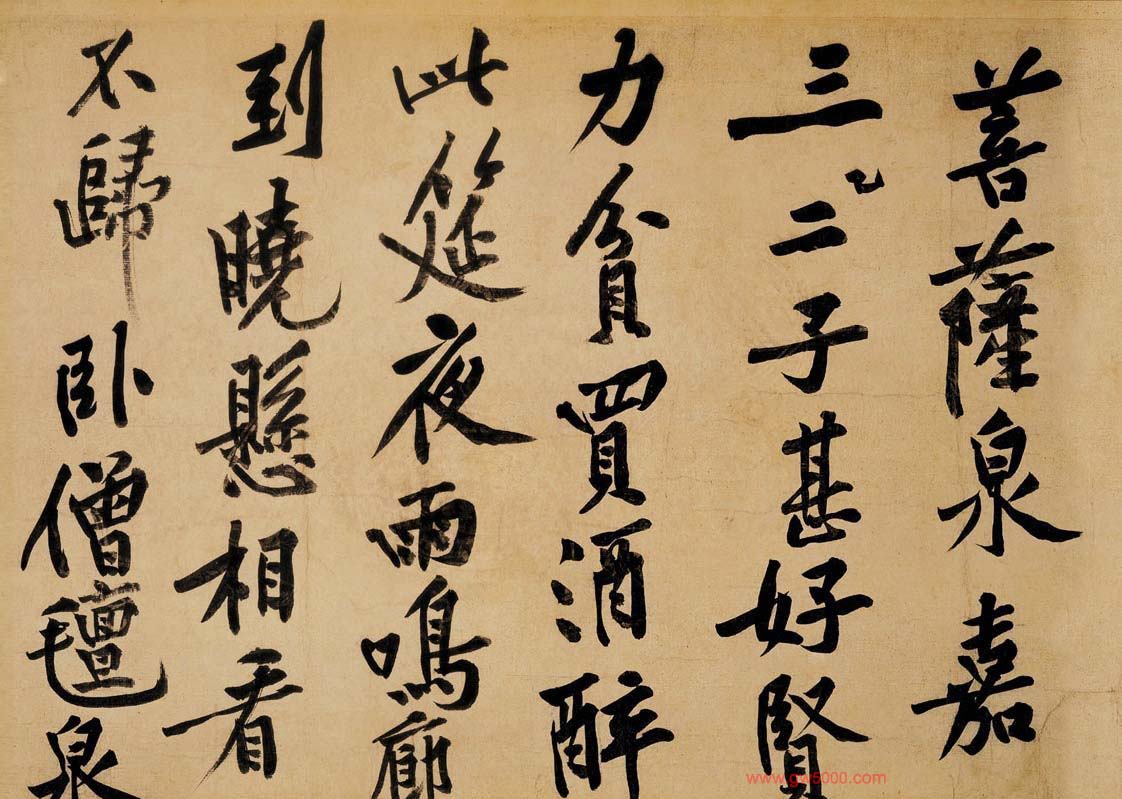 菩薩泉嘉
三二子甚好賢
力貧買酒醉
此筵夜雨鳴廊
到曉懸相看
不歸臥僧氈泉
www.gw5000.com